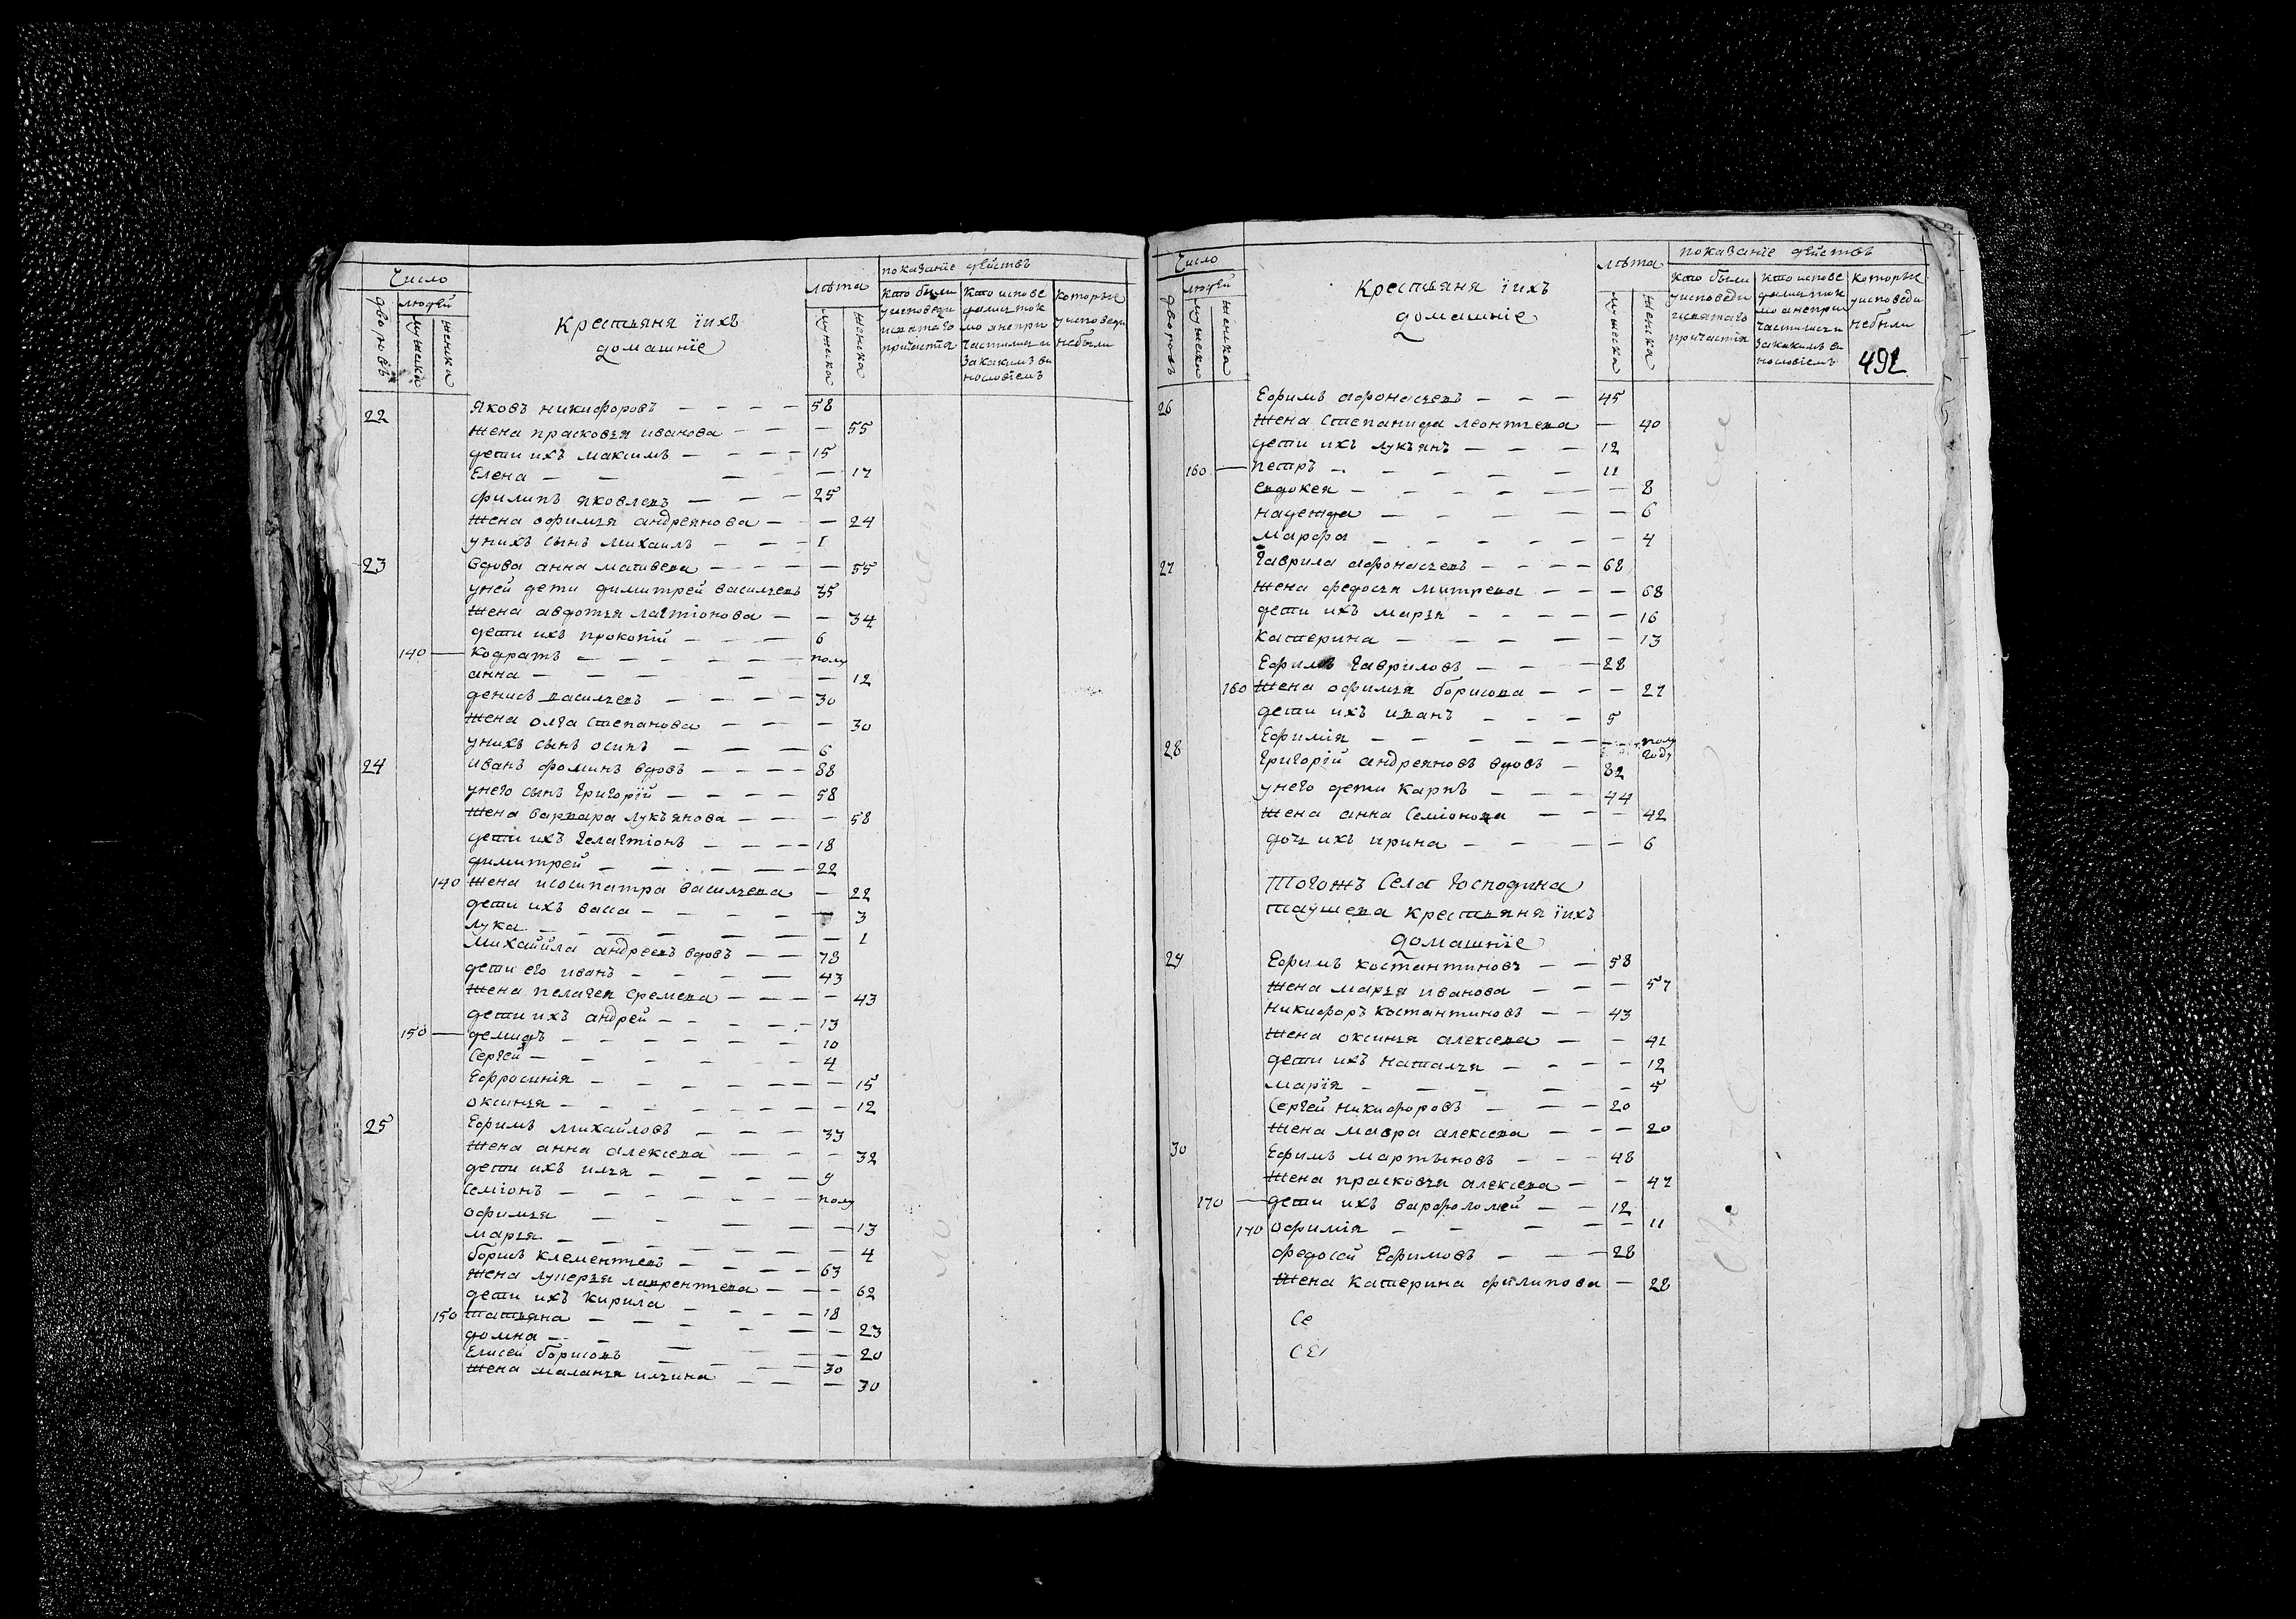 Число
людей
дворовъ
мужеска
женска
Крестьяня їихъ
домашнїе
лѣта
мужеска
женска
показанїе действъ
кто были
у исповеди
и святаго
причастїа
кто испове
дались ток
мо а непри
частились и
за какимъ ви
нословїемъ
которые
у исповеди
небыли
22 Яковъ никифоровъ — — — — 58
жена прасковья иванова — — — 55
дети ихъ максимъ — — — — 15
Елена — — — — 17
филипъ яковлевъ — — — 25
жена офимья андреянова — — 24
у нихъ сынъ михаилъ — — — 1
23 вдова анна матвеева — — — — — 55
у ней дети димитрей васильевъ 35
жена авдотья лагтїонова — — 34
дети ихъ прокопїй — — — 6
140 — кодратъ — — — — — полу
анна — — — — — 12
денисъ васильевъ — — — — 30
жена олга степанова — — — — 30
у нихъ сынъ осипъ — — — 6
24 Иванъ фоминъ вдовъ — — — — 88
у него сынъ Григорїй — — — — 58
жена варвара лукъянова — — — — 58
дети ихъ Гелагтїонъ — — — — 18
димитрей — — — — — 22
140 жена исосипатра васильева — 22
дети ихъ васа — — — — — 3
лука — — — — — — — 1
михайила андреевъ вдовъ — — 78
дети его иванъ — — — — 43
жена пелагея еремеева — — — — 43
дети ихъ андрей — — — — — 13
150 — демидъ — — — — — — 10
Сергей — — — — — 4
Ефросинїя — — — — — — — 15
оксинья — — — — — — — 12
25 Ефимъ михайловъ — — — — 37
жена анна алексеева — — — — 32
дети ихъ илья — — — — 9
Семїонъ — — — — — — — полу
офимья — — — — — 13
марья — — — — — — — 4
борисъ клементьевъ — — — — 63
жена лукерья лаврентьева — — — 62
дети ихъ Кирила — — — — 18
150 татьяна — — — — — — 23
домна — — — — — 20
Елисей борисовъ — — — — 30
жена маланья ильина — — — 30
Число
людей
дворовъ
мужеска
женска
Крестьяня їихъ
домашнїе
лѣта
мужеска
женска
показанїе действъ
кто были
у исповеди
и святаго
причастїя
кто испове
дались ток
мо а непри
частились и
за какимъ ви
нословїемъ
которые
у исповеди
небыли
492
26 Ефимъ афонасьевъ — — — 45
жена Степанида леонтьева — 40
дети ихъ лукъянъ — — — 12
160 — петръ — — — — — 11
евдокея — — — — — — — 8
надежда — — — — — 6
марфа — — — — — — 4
27 Гаврила афонасьевъ — — — — 68
жена федосья митрева — — — 68
дети ихъ марья — — — — — 16
катерина — — — — — 13
Ефимъ Гавриловъ — — — — 28
160 жена офимья борисова — — — 27
дети ихъ иванъ — — — 5
Ефимїя — — — — — — — полу
году
28 Григорїй андреяновъ вдовъ — 82
у него дети карпъ — — — — 44
жена анна Семїонова — — — 42
дочь ихъ ирина — — — — — 6
Тогожъ Села Господина
таушева крестьяня їихъ
домашнїе
29 Ефимъ костантиновъ — — 58
жена марья иванова — — — — 57
никифоръ костантиновъ — — 43
жена оксинья алексеева — — 41
дети ихъ наталья — — — — 12
марїя — — — — — — 5
Сергей никифоровъ — — — 20
жена мавра алексеева — — — 20
30 Ефимъ мартыновъ — — — 48
жена прасковья алексеева — — 47
170 — дети ихъ варфоломей — — 12
170 офимїя — — — — — 11
федосей Ефимовъ — — — 28
жена катерина филипова — 28
Се
СЕ